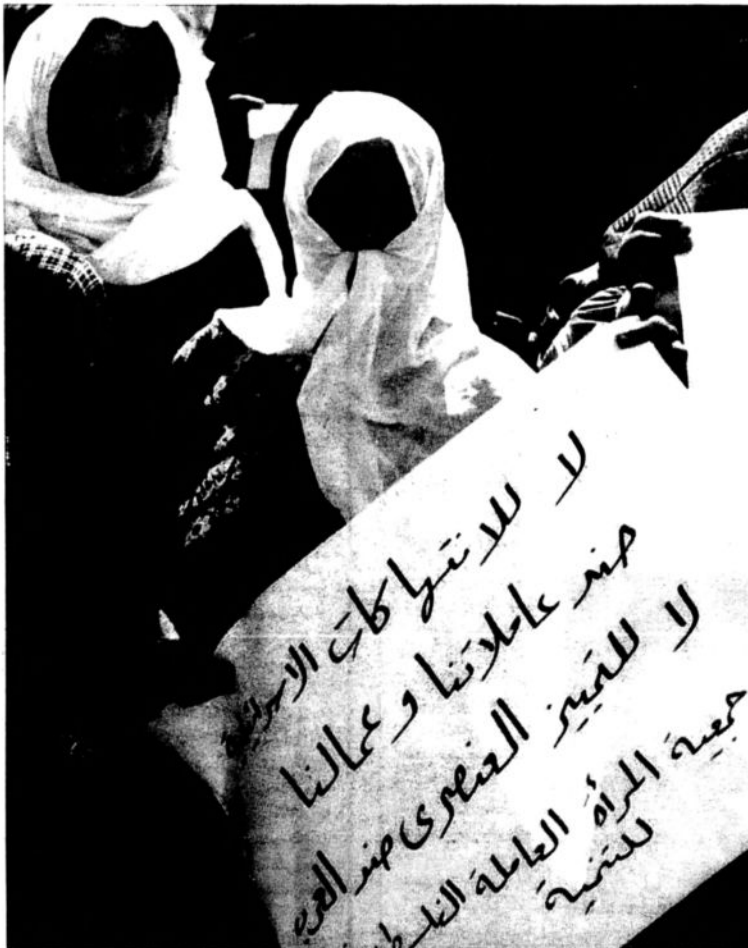 لا للانتهاكات الاسرائيلية
ضد عاملاتنا وعمالنا
لا للتمييز العنصري ضد العرب
جمعية المرأة العاملة
للتنمية